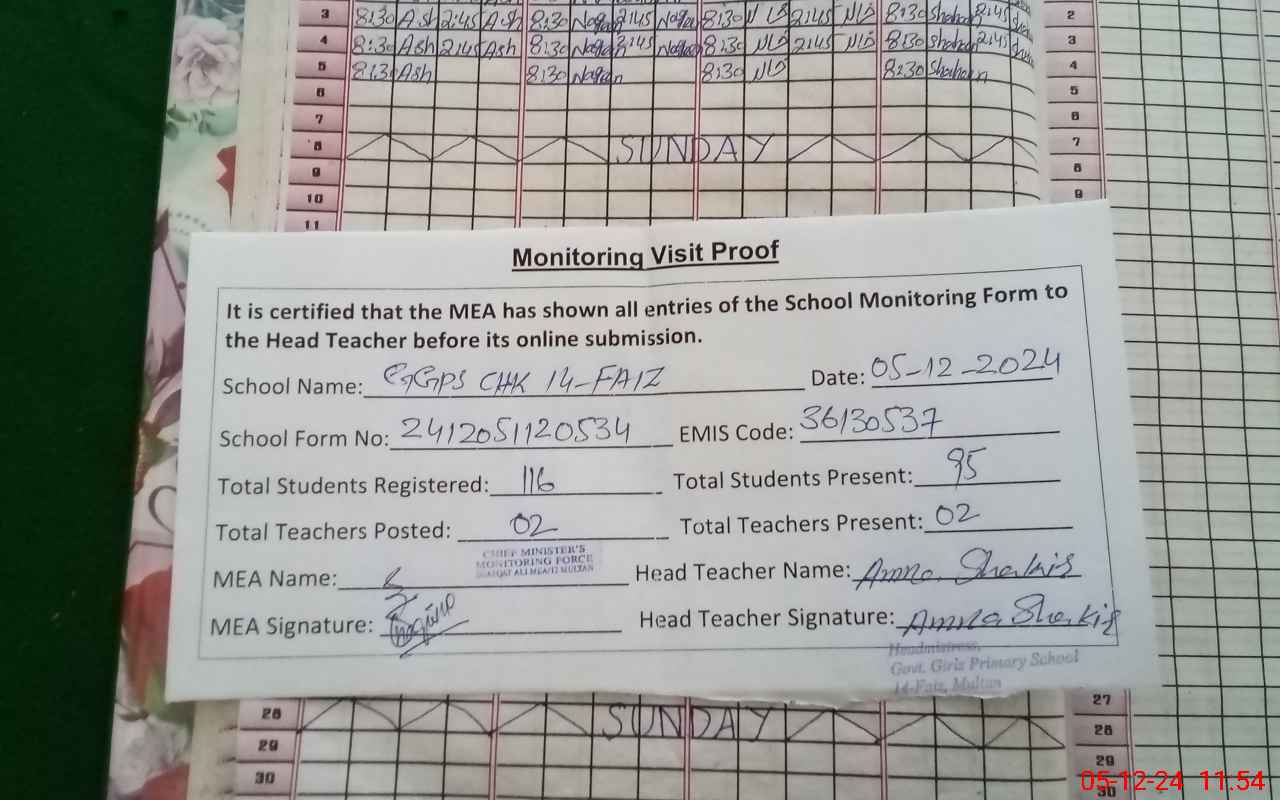 3 8:30 Ash 2:45 Ash 8:30 2:45 8:30 2:45 8:30 2:45 2
4 8:30 Ash 2:45 Ash 8:30 2:45 8:30 2:45 8:30 2:45 3
5 8:30 Ash 8:30 8:30 8:30 4
6 5
7 6
8 SUNDAY 7
9 8
10 9
11
Monitoring Visit Proof
It is certified that the MEA has shown all entries of the School Monitoring Form to
the Head Teacher before its online submission.
School Name: GGPS CHK 14-FAIZ Date: 05-12-2024
School Form No: 2412051120534 EMIS Code: 36130537
Total Students Registered: 116 Total Students Present: 95
Total Teachers Posted: 02 Total Teachers Present: 02
CHIEF MINISTER'S
MONITORING FORCE
ALI MEA/12 MULTAN
MEA Name: Head Teacher Name: Amna Shakir
MEA Signature: Head Teacher Signature: Amna Shakir
Headmistress,
Govt. Girls Primary School
14-Faiz, Multan
27
28 SUNDAY 28
29 29
30 30
05-12-24 11.54